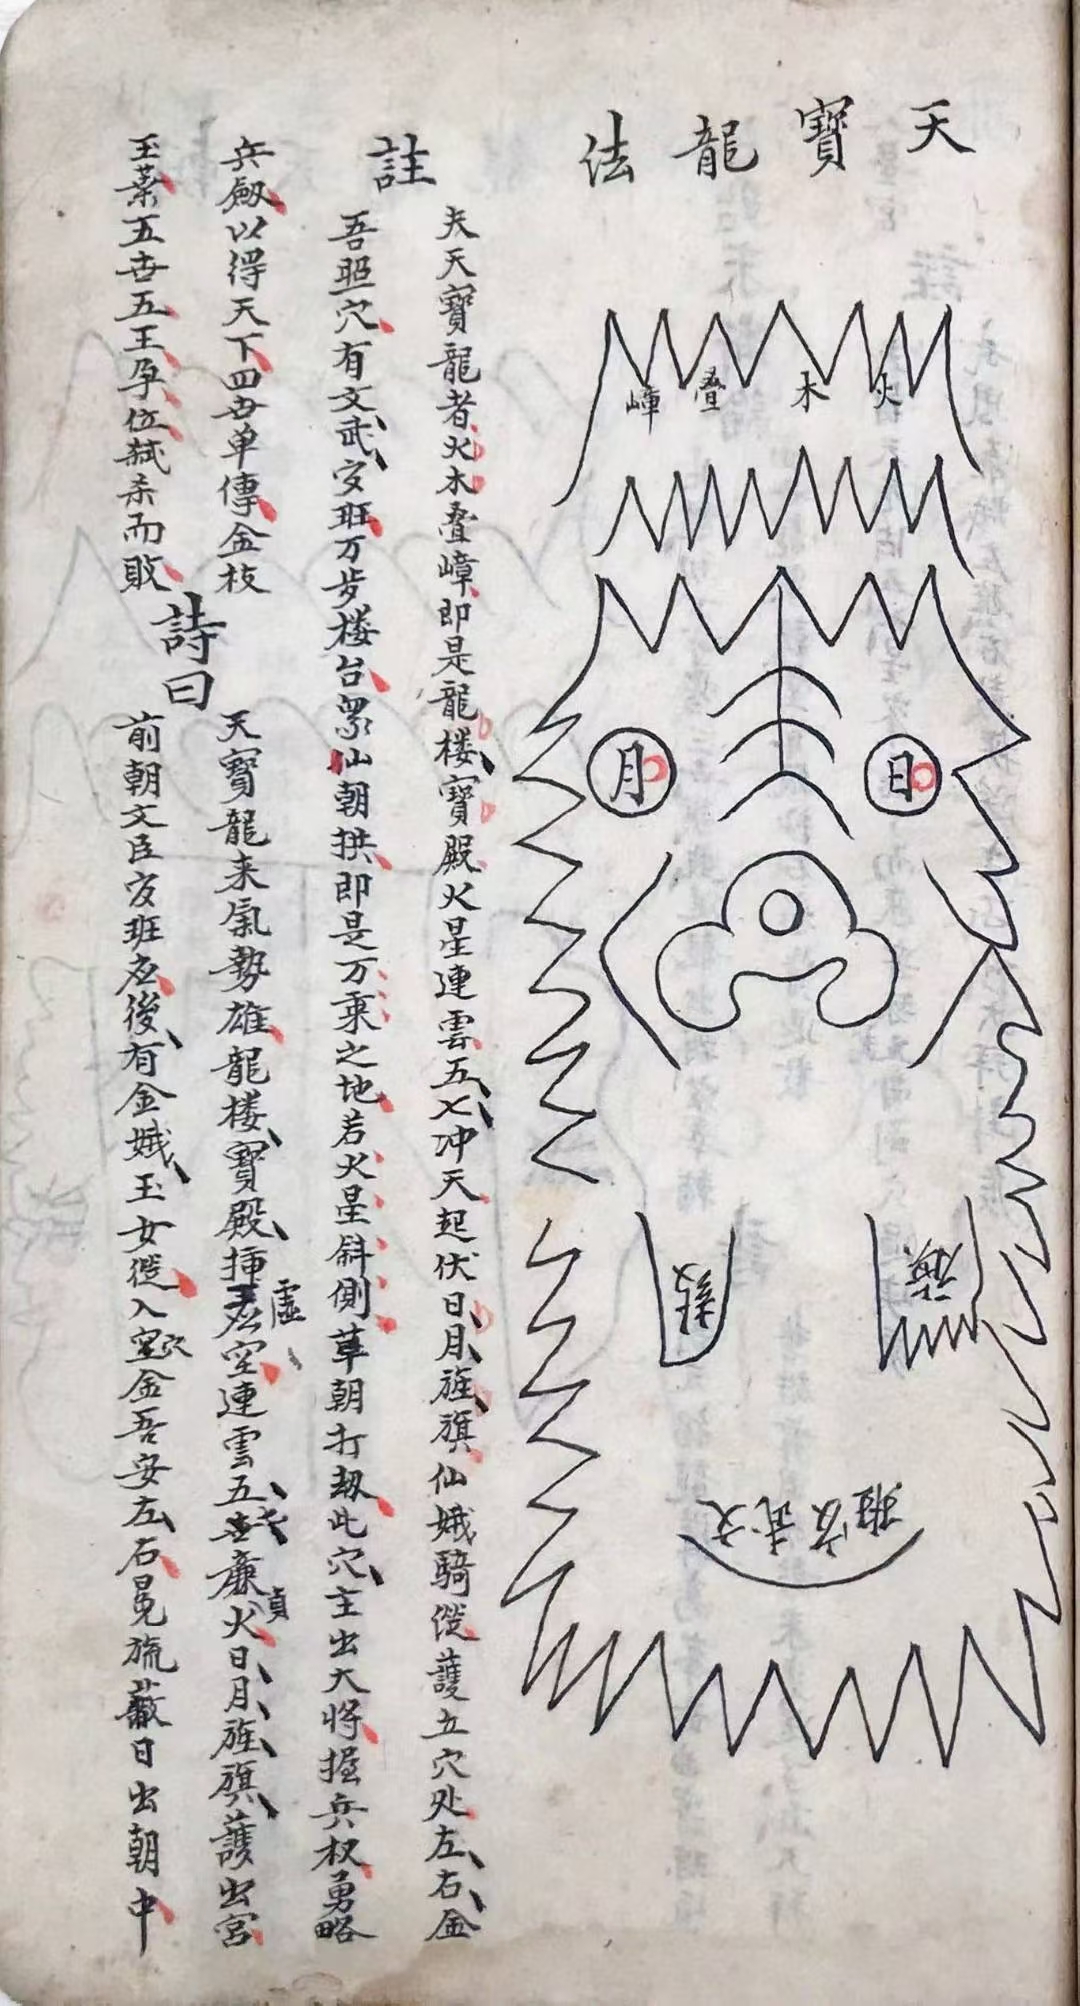 天寶龍法
火木疊嶂
日
月
旗
鼓
文武官班
註
夫天寶龍者火木疊嶂即是龍楼寶殿火星連雲五七冲天起伏日月旌旗仙娥騎從護立穴处左右金
吾照穴有文武官班万步楼台眾仙朝拱即是万乘之地若火星斜側革朝打刼此穴主出大将握兵权勇略
兵劔以得天下四世单傳金枝
玉葉五世五王孕位弑杀而敗
詩曰
天寶龍来氣勢雄龍楼寶殿揷虛空連雲五七廉貞火日月旌旗護出宮
前朝文臣官班应後有金娥玉女從入穴金吾安左右冕旒蔽日出朝中